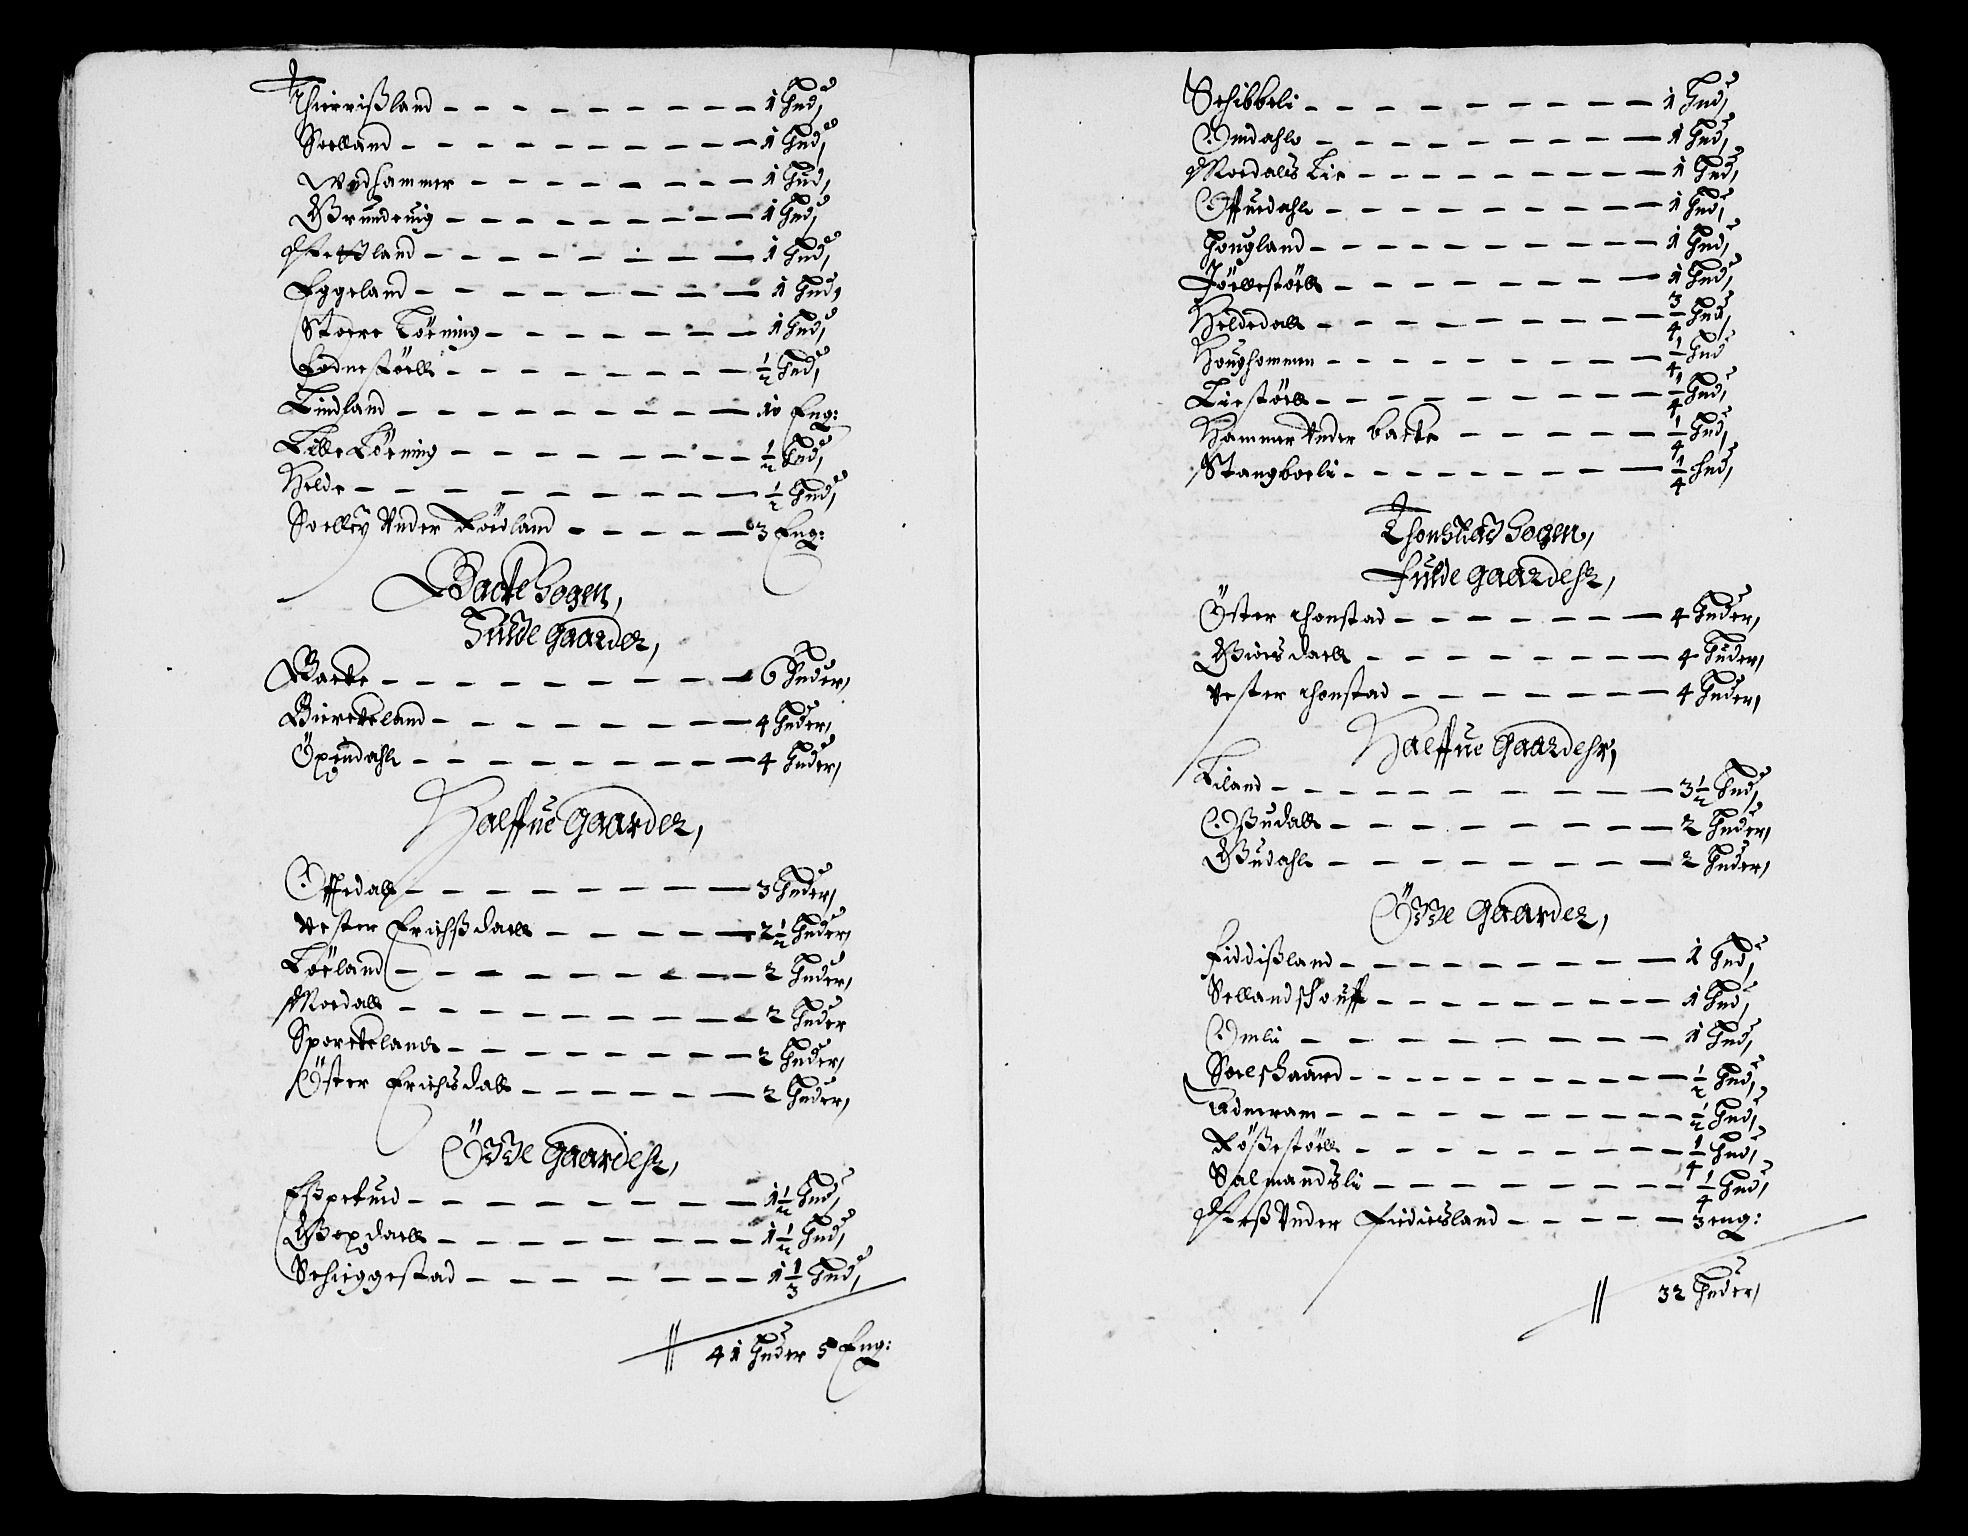 Thierrißland — 1 Hud,
Sœlland — 1 Hud,
Wedhammer — 1 Hud,
Grundeuig — 1 Hud,
Fleßland — 1 Hud,
Eggeland — 1 Hud,
Stoere Lörning — 1 Hud,
Eodnestöell — ½ Hud,
Lindland — 10 Eng:
Lille Lörning — ½ Hud,
Helde — ½ Hud,
Soelley Vnder Röedland — 3 Eng:
Backe Sogen,
Fulde gaarder,
Backe — 6 Huder,
Bierckeland — 4 Huder,
Öxendahl — 4 Huder,
Halffue Gaarder,
Offedall — 3 Huder,
Vester Erichßdaell — 2½ Huder,
Löeland — 2 Huder,
Moedall — 2 Huder
Sporckeland — 2 Huder,
Öster Erichsdall — 2 Huder,
Öde Gaardehr,
Eßpelund — 1½ Hud,
Goxdaell — 1½ Hud,
Schieggestad — 1⅓ Hud,
41 Huder 5 Eng:
Schibbeli — 1 Hud,
Omdahl — 1 Hud,
Moedals Lie — 1 Hud,
Offuedahl — 1 Hud,
Hougland — 1 Hud,
Jöellestöell — 1 Hud,
Heldedall — ¾ Hud,
Houghommen — ¼ Hud
Liestöell — ¼ Hud,
Hammer Vnder backe — ¼ Hud,
Stangboeli — ¼ Hud,
Thonstad Sogen,
Fulde gaardehr,
Öster thonstad — 4 Huder,
Giersdaell — 4 Huder,
Vester thonstad — 4 Huder,
Halffue Gaardehr,
Liland — 3½ Hud,
Oßudall — 2 Huder,
Gudahl — 2 Huder,
Öde Gaarder,
Fiddißland — 1 Hud,
Sellandshouff — 1 Hud,
Omli — 1 Hud,
Soelsgaard — ½ Hud,
Udneram — ½ Hud,
Rößestöell — ¼ Hud,
Salmandsli — ¼ Hud,
Neß Vnder Fidiesland — 3 eng:
32 Huder,